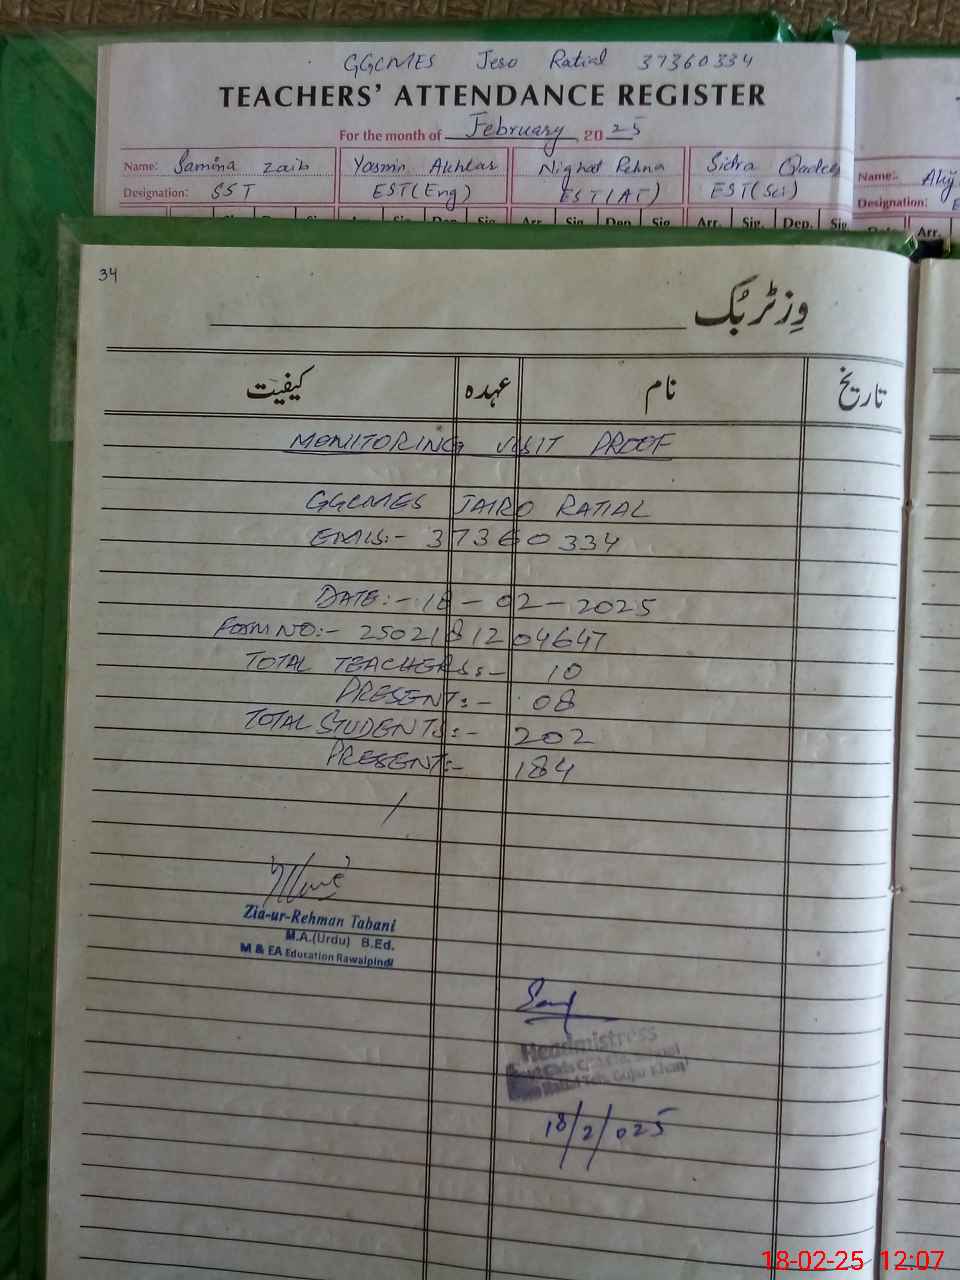 GGCMES Jeso Ratial 37360334
TEACHERS' ATTENDANCE REGISTER
For the month of February, 2025
Name: Samina Zaib Yasmin Akhtar Nighat Rehna Sidra Qadeer Name:
Designation: SST EST(Eng) EST(AT) EST(Sci) Designation:
Arr. Sig. Dep. Sig. Arr. Sig. Dep. Sig. Arr. Sig. Dep. Sig. Arr.
34
وِزٹر بُک
تاریخ نام عہدہ کیفیّت
MONITORING VISIT PROOF
GGCMES JAIRO RATIAL
EMIS:- 37360334
DATE:- 18-02-2025
FORM NO:- 2502181204647
TOTAL TEACHERS:- 10
PRESENT:- 08
TOTAL STUDENTS:- 202
PRESENT:- 184
Zia-ur-Rehman Tabani
M.A.(Urdu) B.Ed.
M & EA Education Rawalpindi
Headmistress
Gujar Khan
18/2/025
18-02-25 12:07